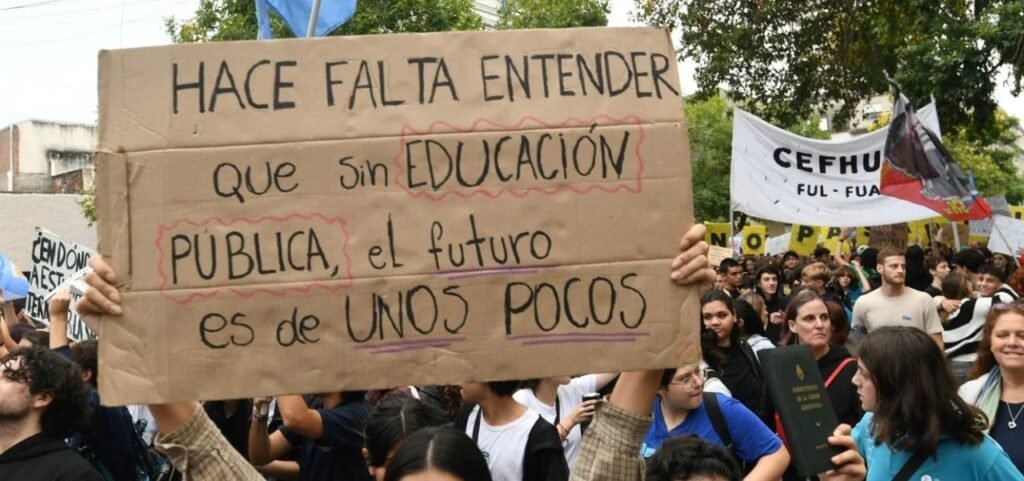 HACE FALTA ENTENDER
que sin EDUCACIÓN
PÚBLICA, el futuro
es de UNOS POCOS
CEFHU
FUL - FUA
NO PA
CONSTITUCIÓN
DE LA NACIÓN
ARGENTINA